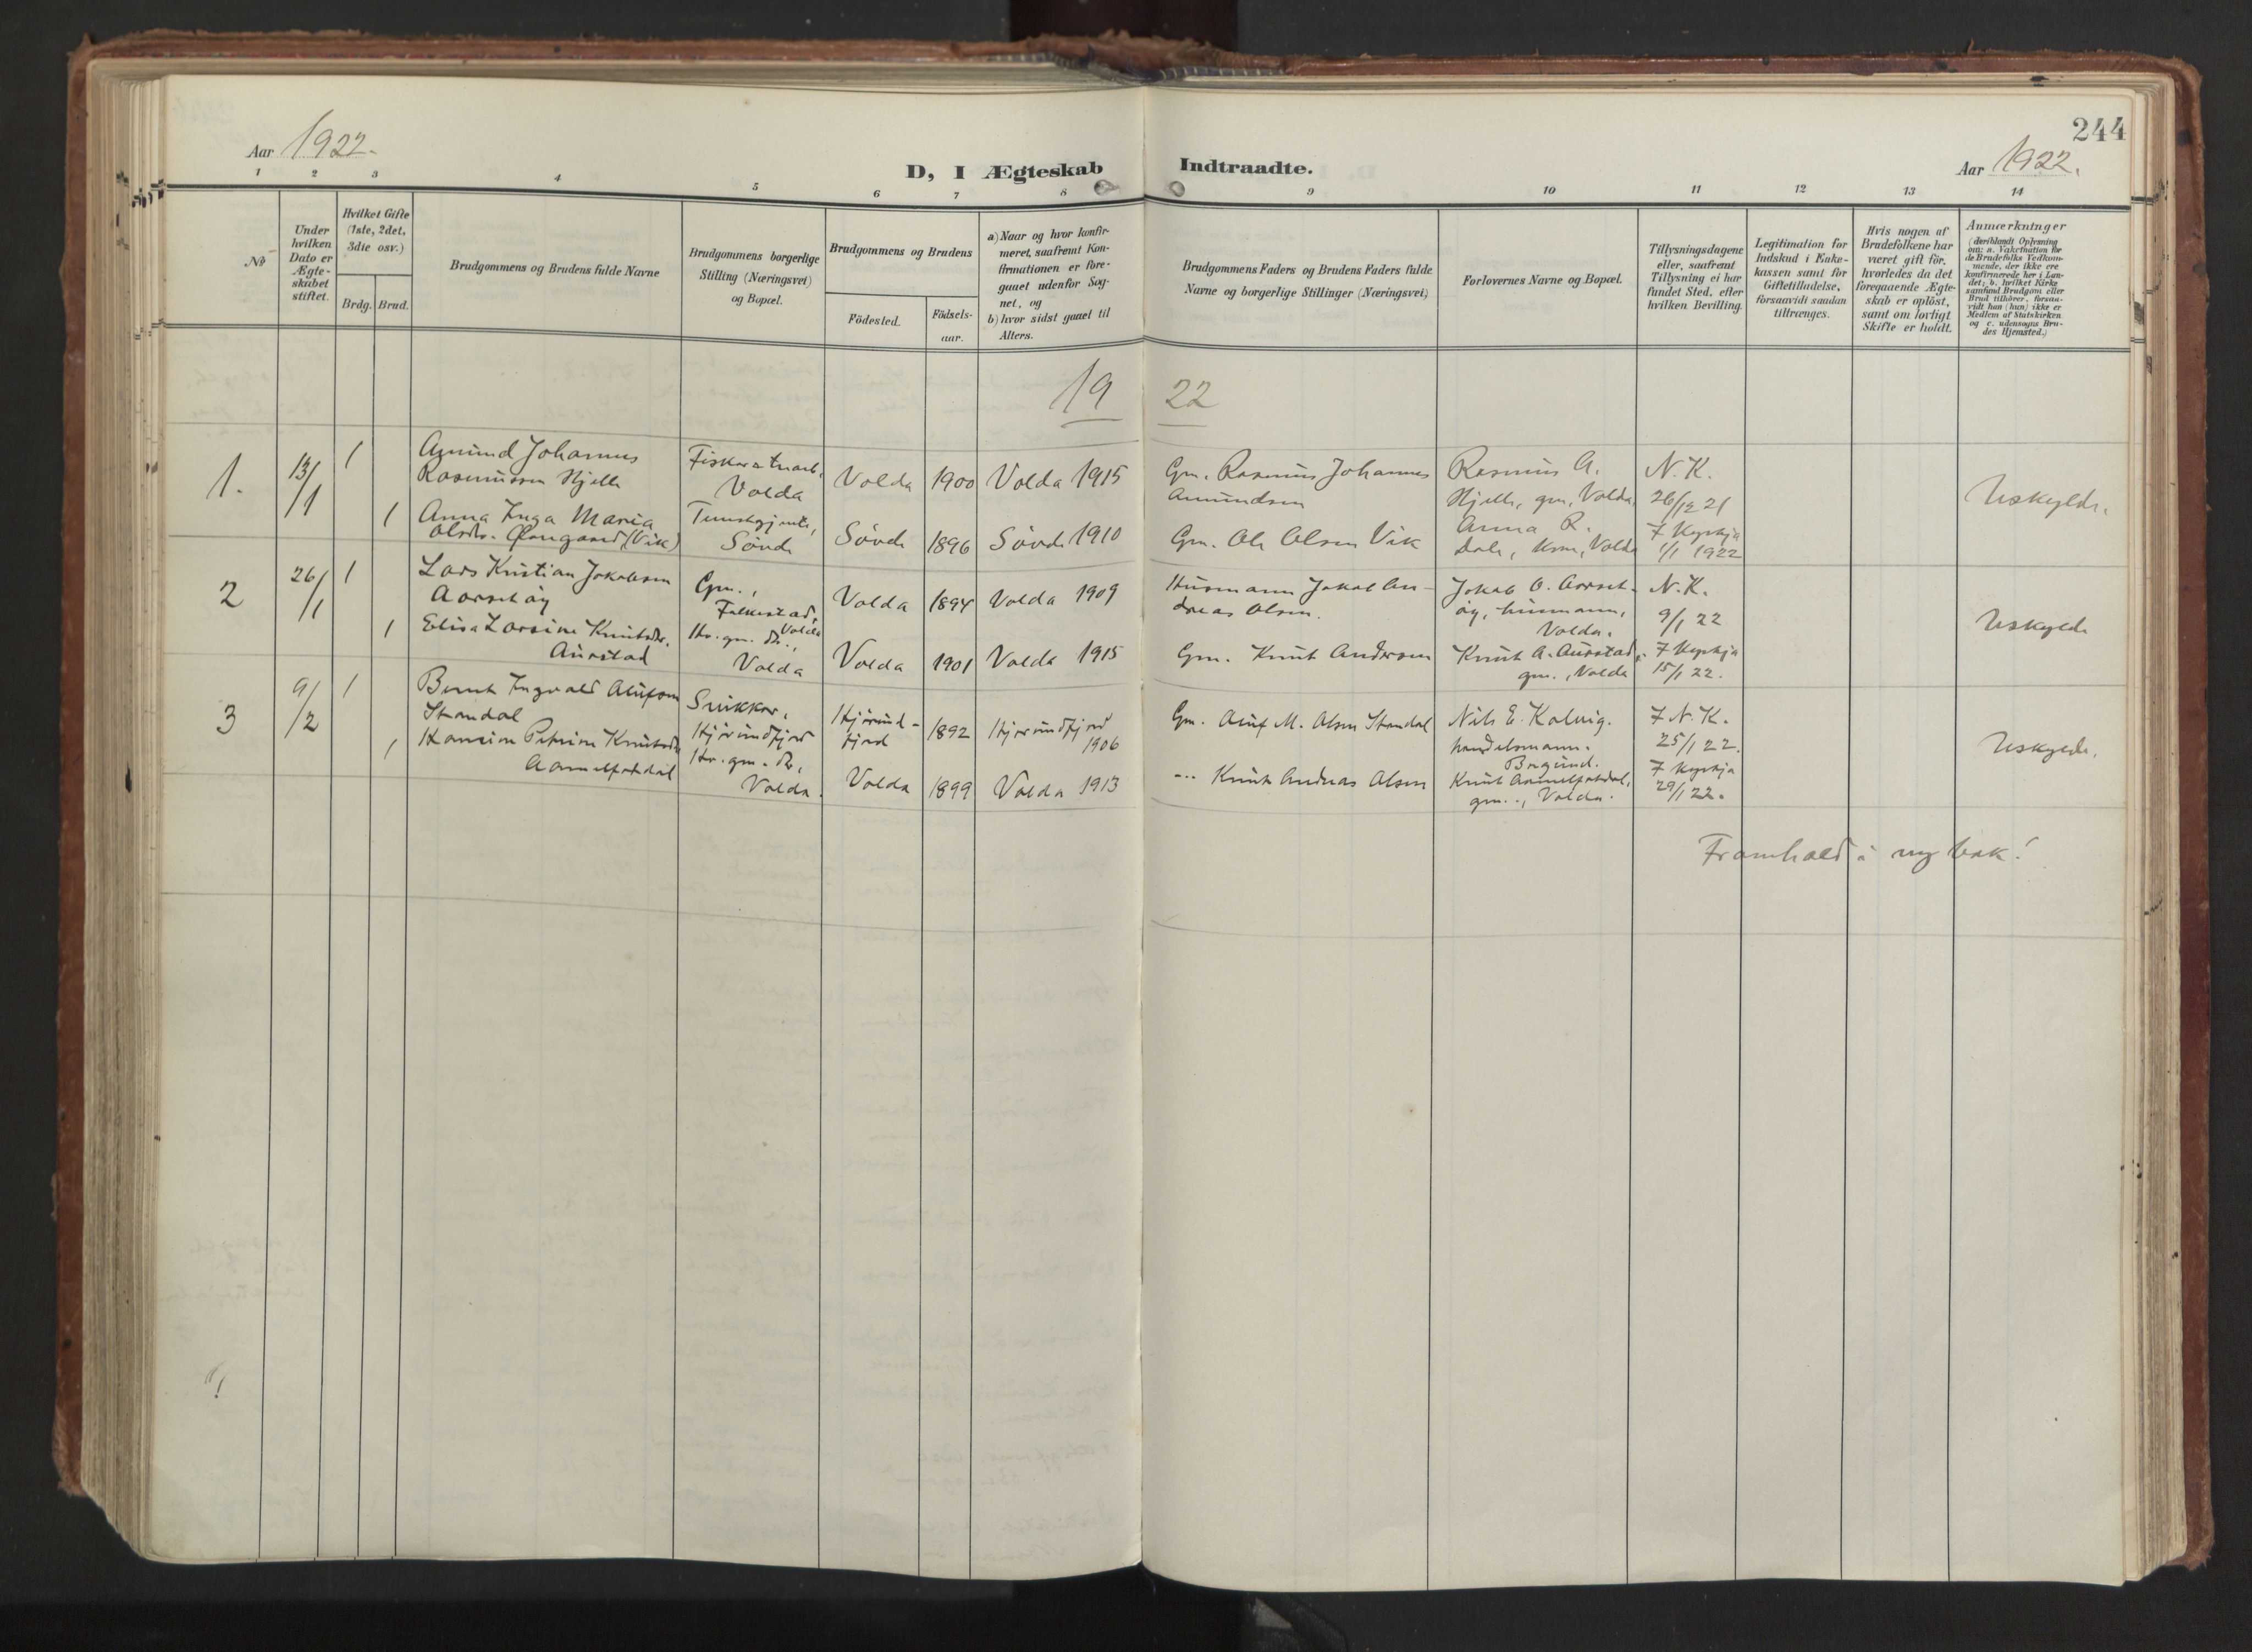 244
Aar 1922.
D, I Ægteskab Indtraadte.
Aar 1922.
1 2 3 4 5 6 7 8 9 10 11 12 13 14
No
Under hvilken Dato er Ægteskabet stiftet.
Hvilket Gifte (1ste, 2det, 3die osv.)
Brdg. Brud.
Brudgommens og Brudens fulde Navne
Brudgommens borgerlige Stilling (Næringsvei) og Bopæl.
Brudgommens og Brudens
Födested.
Födsels-aar.
a) Naar og hvor konfir-
meret, saafremt Kon-
firmationen er fore-
gaaet udenfor Sog-
net, og
b) hvor sidst gaaet til
Alters.
Brudgommens Faders og Brudens Faders fulde
Navne og borgerlige Stillinger (Næringsvei)
Forlovernes Navne og Bopæl.
Tillysningsdagene
eller, saafremt
Tillysning ei har
fundet Sted, efter
hvilken Bevilling.
Legitimation for
Indskud i Enke-
kassen samt for
Giftetilladelse,
forsaavidt saadan
tiltrænges.
Hvis nogen af
Brudefolkene har
været gift för,
hvorledes da det
foregaaende Ægte-
skab er oplöst,
samt om lovligt
Skifte er holdt.
Anmærkninger
(deriblandt Oplysning
om: a. Vakcination for
de Brudefolks Vedkom-
mende, der ikke ere
konfirmerede her i Lan-
det; b. hvilket Kirke-
samfund Brudgom eller
Brud tilhörer, forsaa-
vidt han (hun) ikke er
Medlem af Statskirken
og c. udensogns Bru-
des Hjemsted.)
19 22
1. 13/1 1 Amund Johannes
Rasmussen Hjelle
Volda
Volda 1900 Volda 1915
Gm. Rasmus Johannes
Amundsen
Rasmus A.
Hjelle, gm, Volda
N.K.
26/12 21
Uskylde.
1 Anna Inga Maria
Olsdr. (Vik)
Sövde
Sövde 1896 Sövde 1910
Gm. Ole Olsen Vik
Anna R.
Dale, Volda
7 Kyrkja
1/1 1922
2 26/1 1 Lars Kristian Jakobsen
Aarsetöy
Gm.,
Folkestad,
Volda
Volda 1894 Volda 1909
Husmann Jakob An-
dreas Olsen.
Jakob O. Aarset-
öy, husmann,
Volda.
N.K.
9/1 22
Uskylde
1 Elisa Larsine Knutsdr.
Aurstad
Hr. gm. dr.,
Volda
Volda 1901 Volda 1915
Gm. Knut Andersen
Knut A. Aurstad,
gm., Volda
7 Kyrkja
15/1 22.
3 9/2 1 Bernt Ingvald Alufsen
Standal
Snikkar,
Hjörundfjord
Hjörund-
fjord 1892 Hjörundfjord
1906
Gm. Aluf M. Olsen Standal
Nils E. Kolvig.
handelsmann.
Borgund.
7 N.K.
25/1 22.
Uskylde.
1 Hansine Petrine Knutsdr
Aamelfotdal
Hr. gm. dr.,
Volda.
Volda 1899 Volda 1913
--- Knut Andreas Olsen
Knut Aamelfotdal,
gm., Volda.
7 Kyrkja
29/1 22.
Framhald i ny bok!